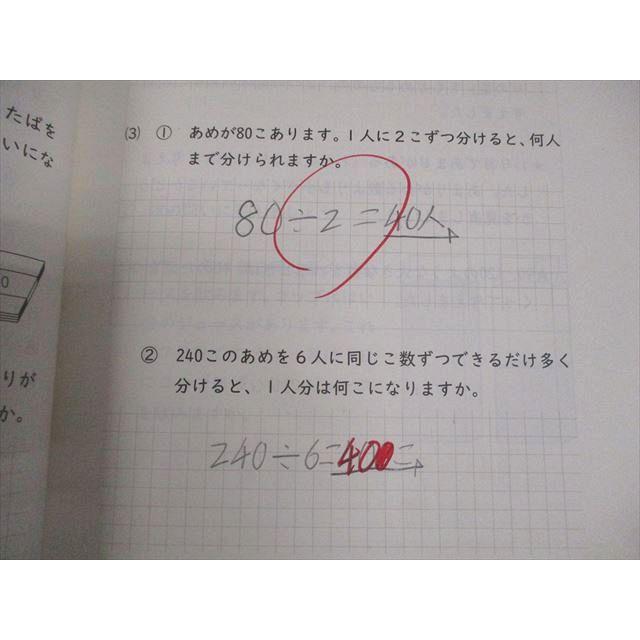 たばを
いにな
0
りが
か。
(3) ① あめが80こあります。1人に2こずつ分けると、何人
まで分けられますか。
80÷2=40人
② 240このあめを6人に同じこ数ずつできるだけ多く
分けると、1人分は何こになりますか。
240÷6=40こ